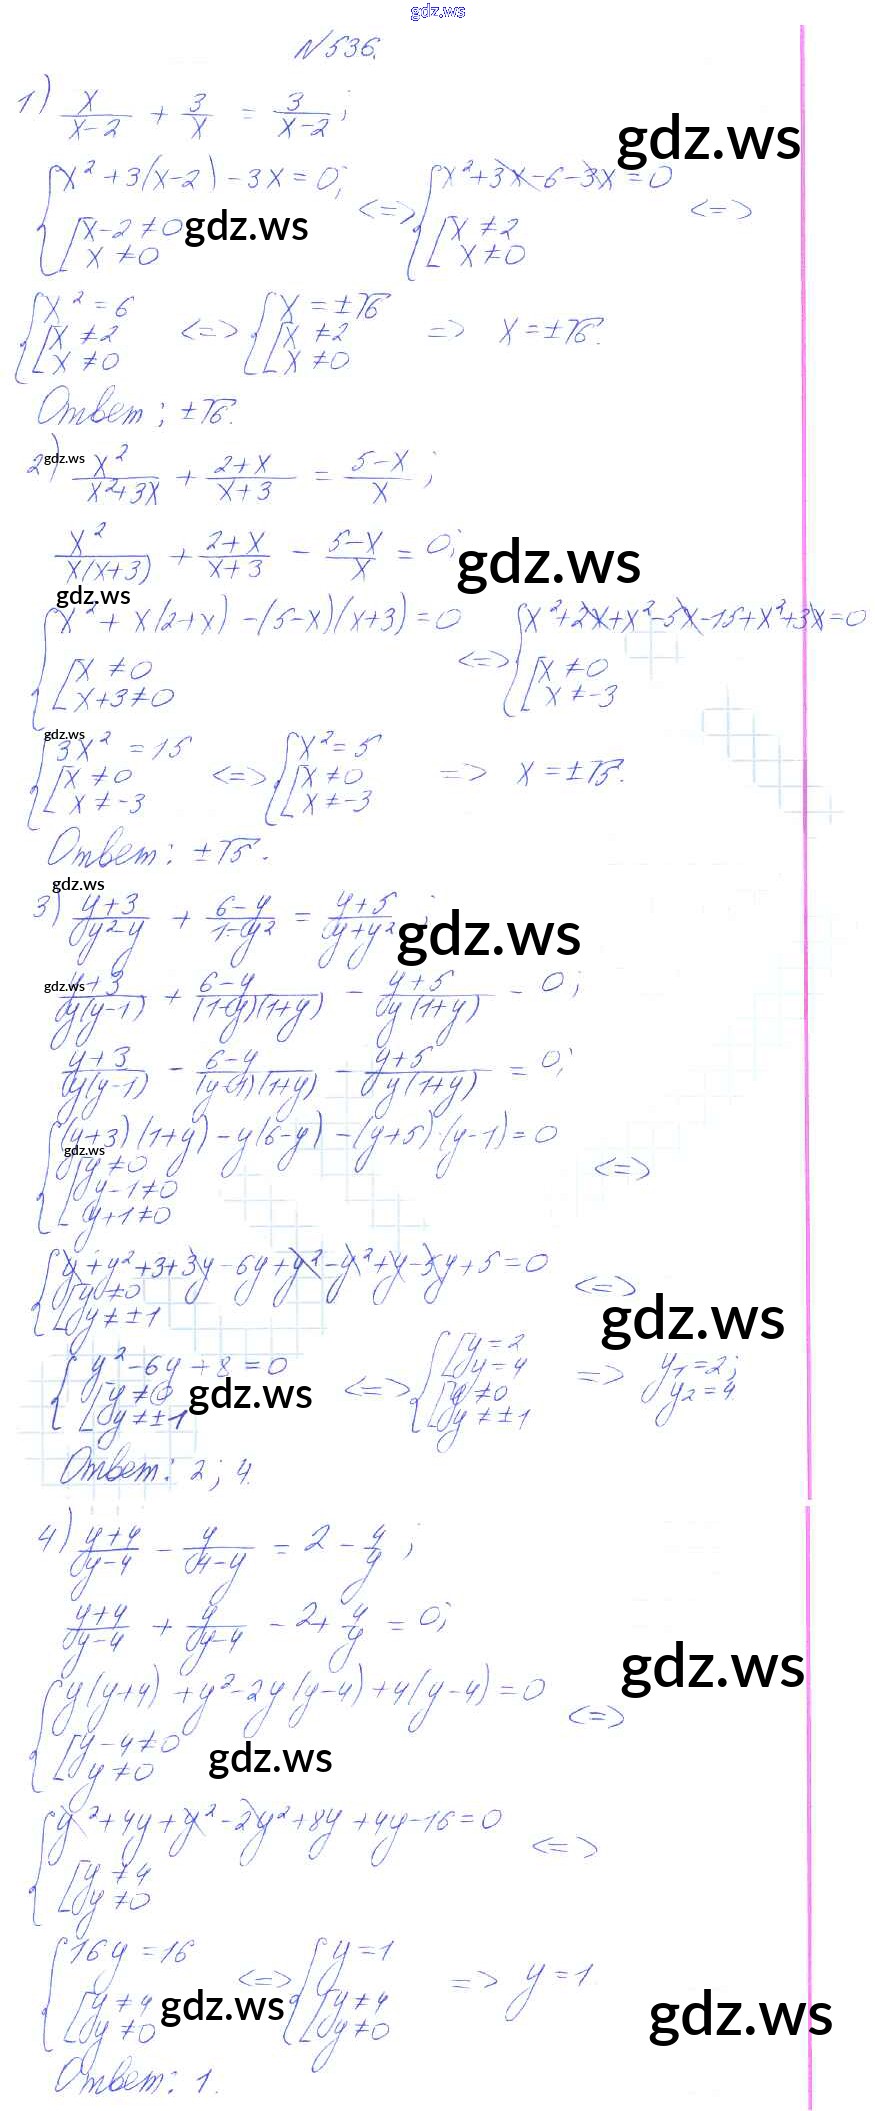 gdz.ws
N536.
1) x/(x-2) + 3/x = 3/(x-2);
gdz.ws
{x² + 3(x-2) - 3x = 0; <=> {x² + 3x - 6 - 3x = 0 <=>
[x-2 ≠ 0 gdz.ws [x ≠ 2
x ≠ 0 x ≠ 0
{x² = 6 <=> {x = ±√6
[x ≠ 2 [x ≠ 2 => x = ±√6.
x ≠ 0 x ≠ 0
Ответ; ±√6.
2) gdz.ws x²/(x²+3x) + (2+x)/(x+3) = (5-x)/x;
x²/(x(x+3)) + (2+x)/(x+3) - (5-x)/x = 0; gdz.ws
gdz.ws
{x² + x(2+x) - (5-x)(x+3) = 0 <=> {x²+2x+x²-5x-15+x²+3x=0
[x ≠ 0 [x ≠ 0
x+3 ≠ 0 x ≠ -3
gdz.ws
{3x² = 15 <=> {x² = 5
[x ≠ 0 [x ≠ 0 => x = ±√5.
x ≠ -3 x ≠ -3
Ответ: ±√5.
gdz.ws
3) (y+3)/(y²-y) + (6-y)/(1-y²) = (y+5)/(y+y²); gdz.ws
gdz.ws (y+3)/(y(y-1)) + (6-y)/((1-y)(1+y)) - (y+5)/(y(1+y)) - 0;
(y+3)/(y(y-1)) - (6-y)/((y-1)(1+y)) - (y+5)/(y(1+y)) = 0;
{(y+3)(1+y) - y(6-y) - (y+5)(y-1) = 0 <=>
gdz.ws [y ≠ 0
y-1 ≠ 0
y+1 ≠ 0
{y+y²+3+3y-6y+y²-y²+y-5y+5=0 <=>
[y ≠ 0
y ≠ ±1 gdz.ws
{y²-6y+8=0 <=> {[y=2 y=4 => y₁=2; y₂=4.
[y ≠ 0 gdz.ws [y ≠ 0
y ≠ ±1 y ≠ ±1
Ответ: 2; 4.
4) (y+4)/(y-4) - y/(4-y) = 2 - 4/y;
(y+4)/(y-4) + y/(y-4) - 2 + 4/y = 0;
gdz.ws
{y(y+4) + y² - 2y(y-4) + 4(y-4) = 0 <=>
[y-4 ≠ 0 gdz.ws
y ≠ 0
{y²+4y+y²-2y²+8y+4y-16=0 <=>
[y ≠ 4
y ≠ 0
{16y = 16 <=> {y = 1 => y = 1.
[y ≠ 4 gdz.ws [y ≠ 4 gdz.ws
y ≠ 0 y ≠ 0
Ответ: 1.